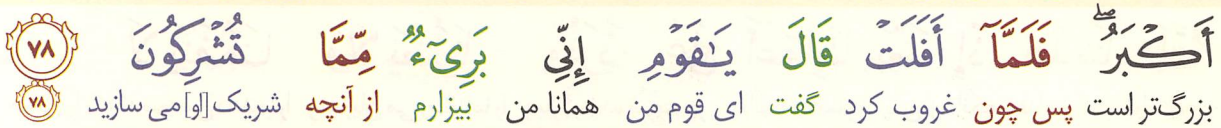 أَكۡبَرُۖ فَلَمَّآ أَفَلَتۡ قَالَ يَٰقَوۡمِ إِنِّي بَرِيٓءٞ مِّمَّا تُشۡرِكُونَ ٧٨
بزرگ‌تر است پس چون غروب کرد گفت ای قوم من همانا من بیزارم از آنچه شریک [او] می سازید ۷۸